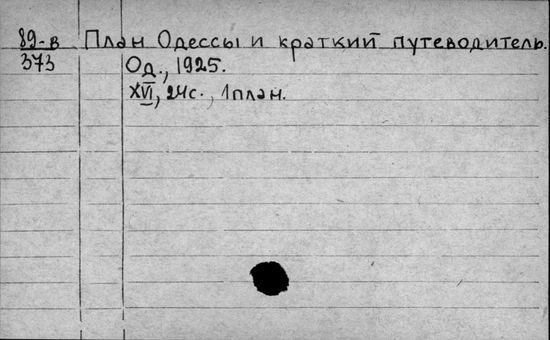 89-в План Одессы и краткий путеводитель.
373 Од., 1925.
XVI, 24с., 1план.